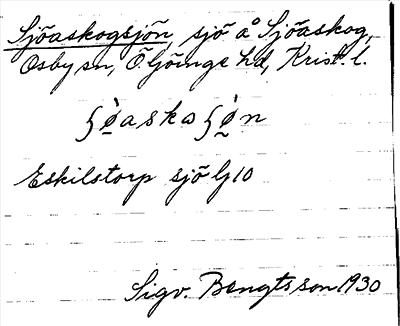 Sjöaskogsjön, sjö å Sjöaskog,
Osby sn, Ö Göinge hd, Krist. l.
Eskilstorp sjö
Sigv. Bengtsson 1930